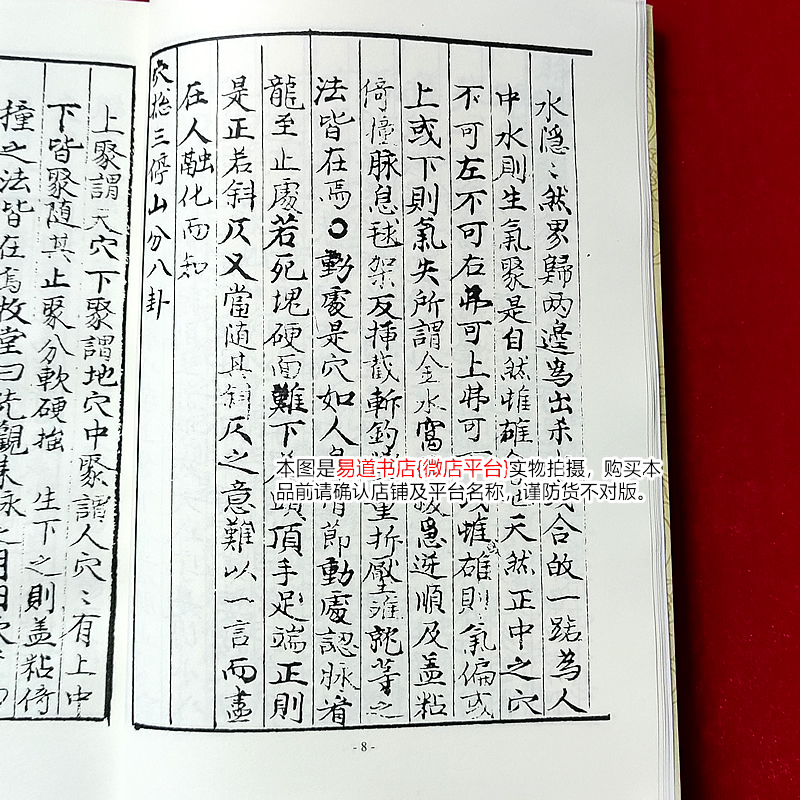 水隱〻然界歸两邊為出杀 合故一踮為人
中水則生氣聚是自然雌雄 天然正中之穴
不可左不可右弗可上弗可 雌雄則氣偏或
上或下則氣失所謂金水窩 急逆順及盖粘
倚撞脉息毬架及挿截斬釣 折壓 就等之
法皆在焉○動處是穴如人 節動處認脉看
龍至止處若死塊硬面難下 頂手足端正則
是正若斜仄又當随其斜仄之意難以一言而盡
在人融化而知
穴捴三停山分八卦
上聚謂天穴下聚謂地穴中聚謂人穴〻有上中
下皆聚随其止聚分軟硬 生下之則盖粘倚
撞之法皆在焉故堂曰先觀
本图是易道书店(微店平台)实物拍摄，购买本
品前请确认店铺及平台名称，谨防货不对版。
- 8 -